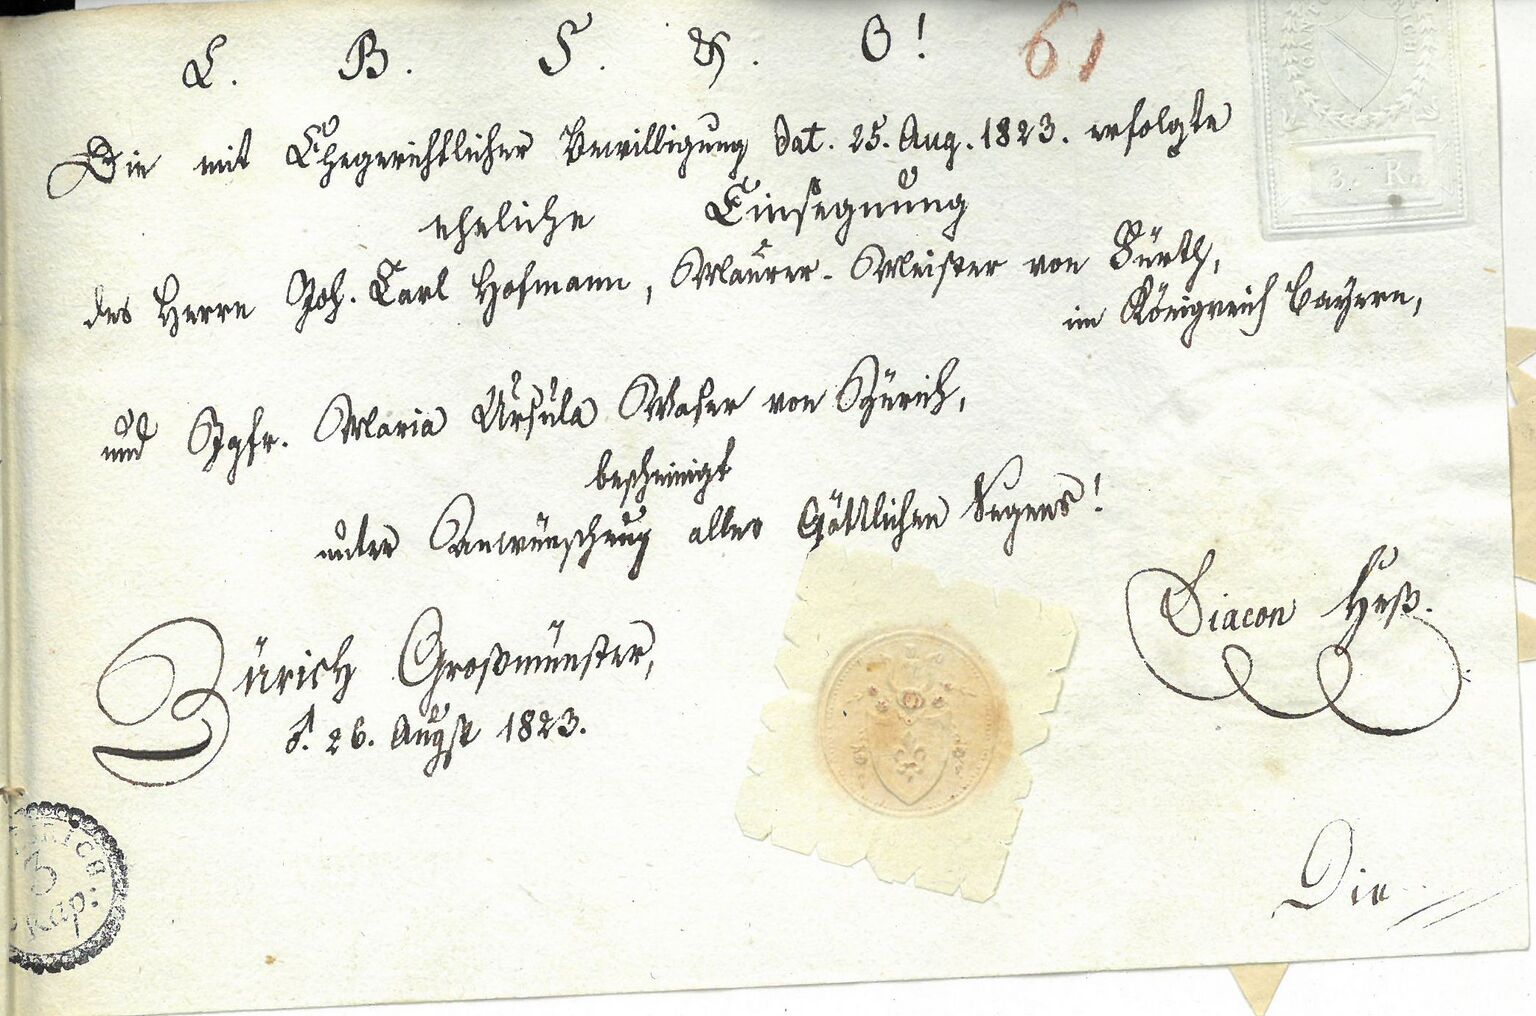 L. B. S. & O! 61
Die mit Ehegerichtlicher Bewilligung dat. 25. Aug. 1823. erfolgte
eheliche Einsegnung
des Herrn Joh. Carl Hofmann, Maurer-Meister von Fürth,
im Königreich Bayern,
und Jgfr. Maria Ursula Waser von Zürich,
bescheinigt
unter Anwünschung alles Göttlichen Segens!
Diacon Heß.
Zürich Großmünster,
d. 26. Augst 1823.
3 R.
3
Kap:
Die